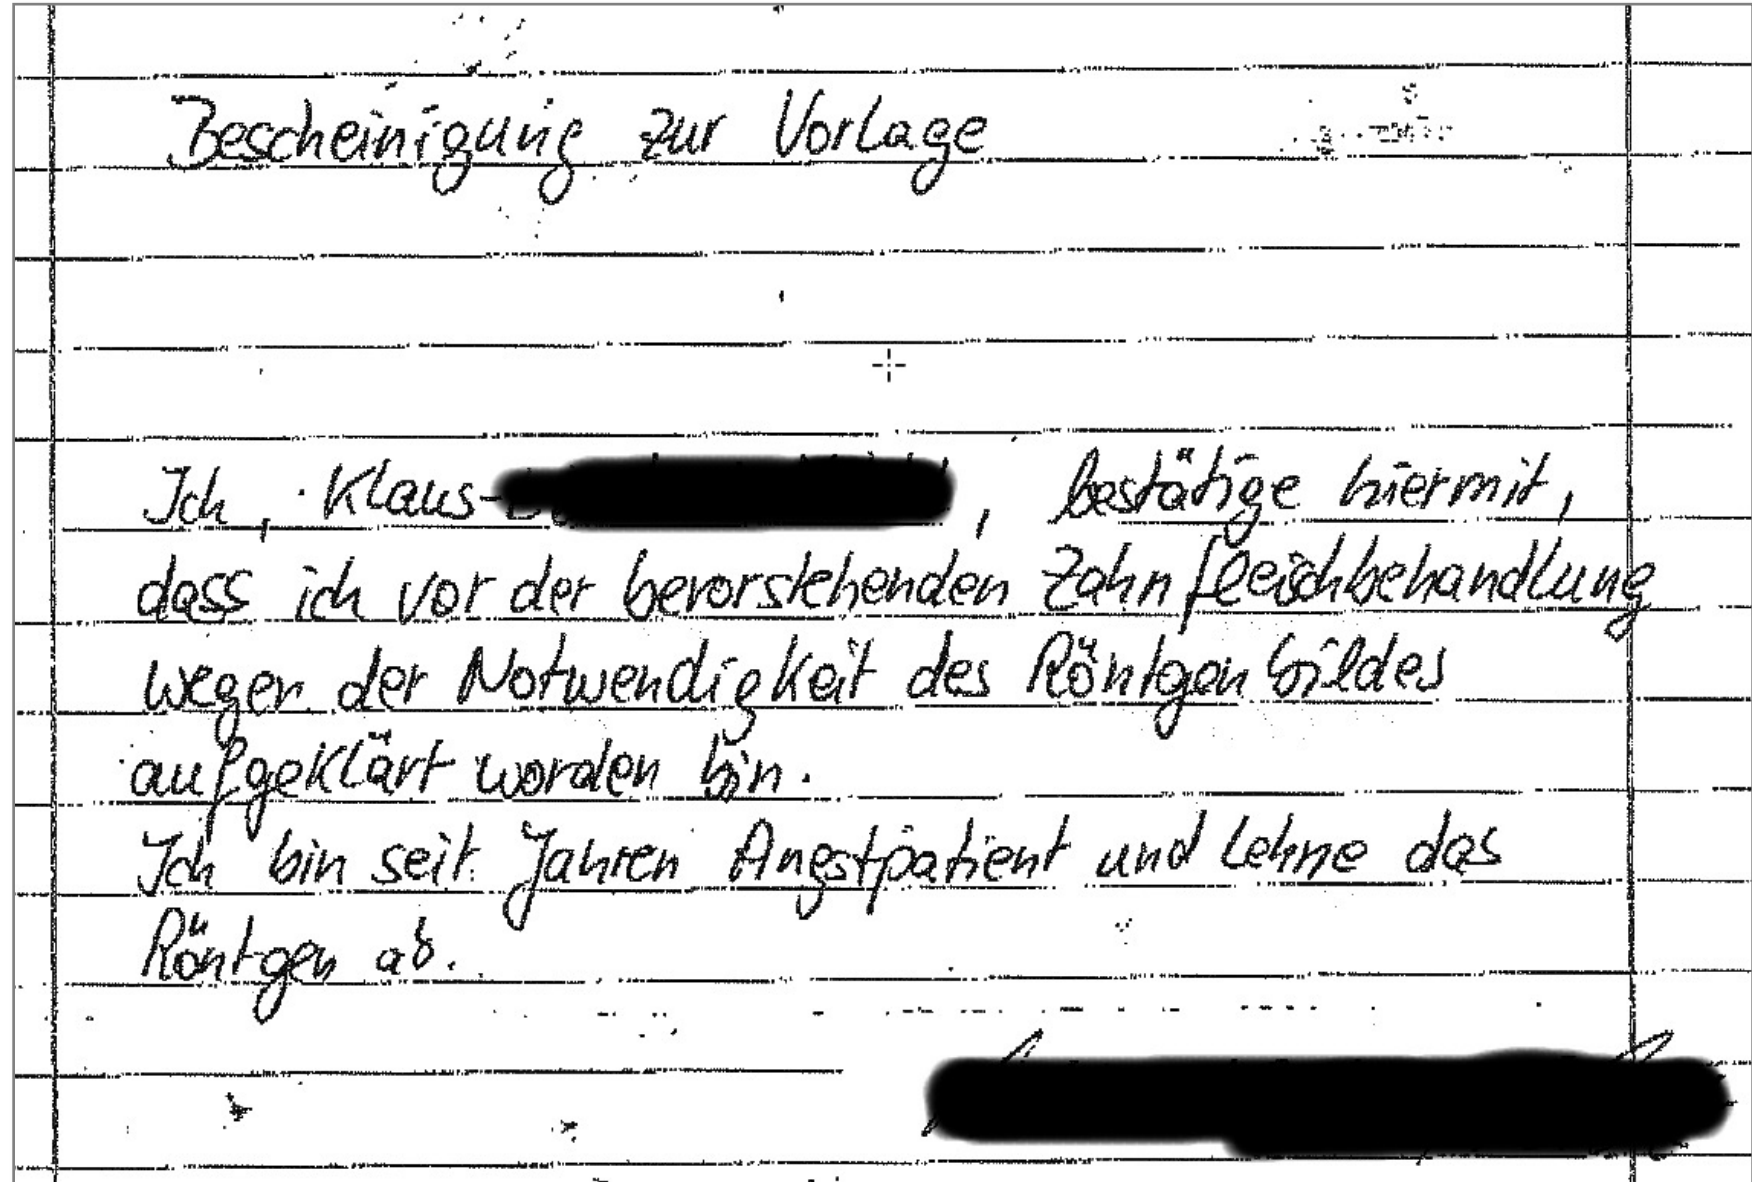 Bescheinigung zur Vorlage
Ich, Klaus-, bestätige hiermit,
dass ich vor der bevorstehenden Zahnfleischbehandlung
wegen der Notwendigkeit des Röntgenbildes
aufgeklärt worden bin.
Ich bin seit Jahren Angstpatient und lehne das
Röntgen ab.